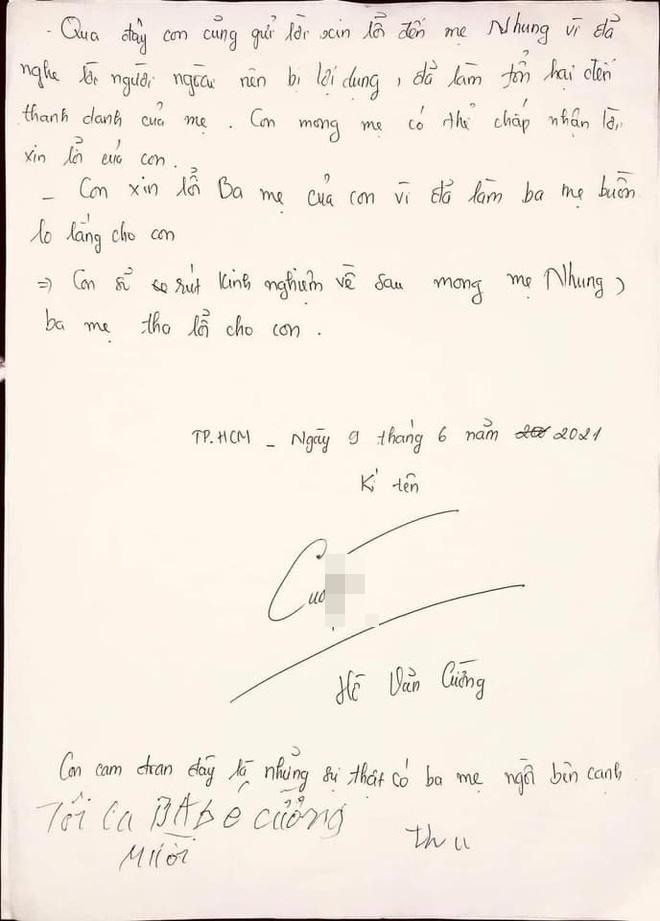 - Qua đây con củng gửi lời xin lổi đến mẹ Nhung vì đả
nghe lời người ngoài nên bị lợi dụng, đả làm tổn hại đến
thanh danh của mẹ. Con mong mẹ có thể chấp nhận lời
xin lổi củả con.
- Con xin lổi Ba mẹ của con vì đả làm ba mẹ buồn
lo lắng cho con
=> Con sẻ rút kinh nghiệm về sau mong mẹ Nhung,
ba mẹ tha lổi cho con.
TP.HCM - Ngày 9 tháng 6 năm 2021
Kí tên
Hồ Văn Cường
Con cam đoan đây là những sự thật có ba mẹ ngồi bên cạnh
Tôi BA bé cường
MƯời
thu